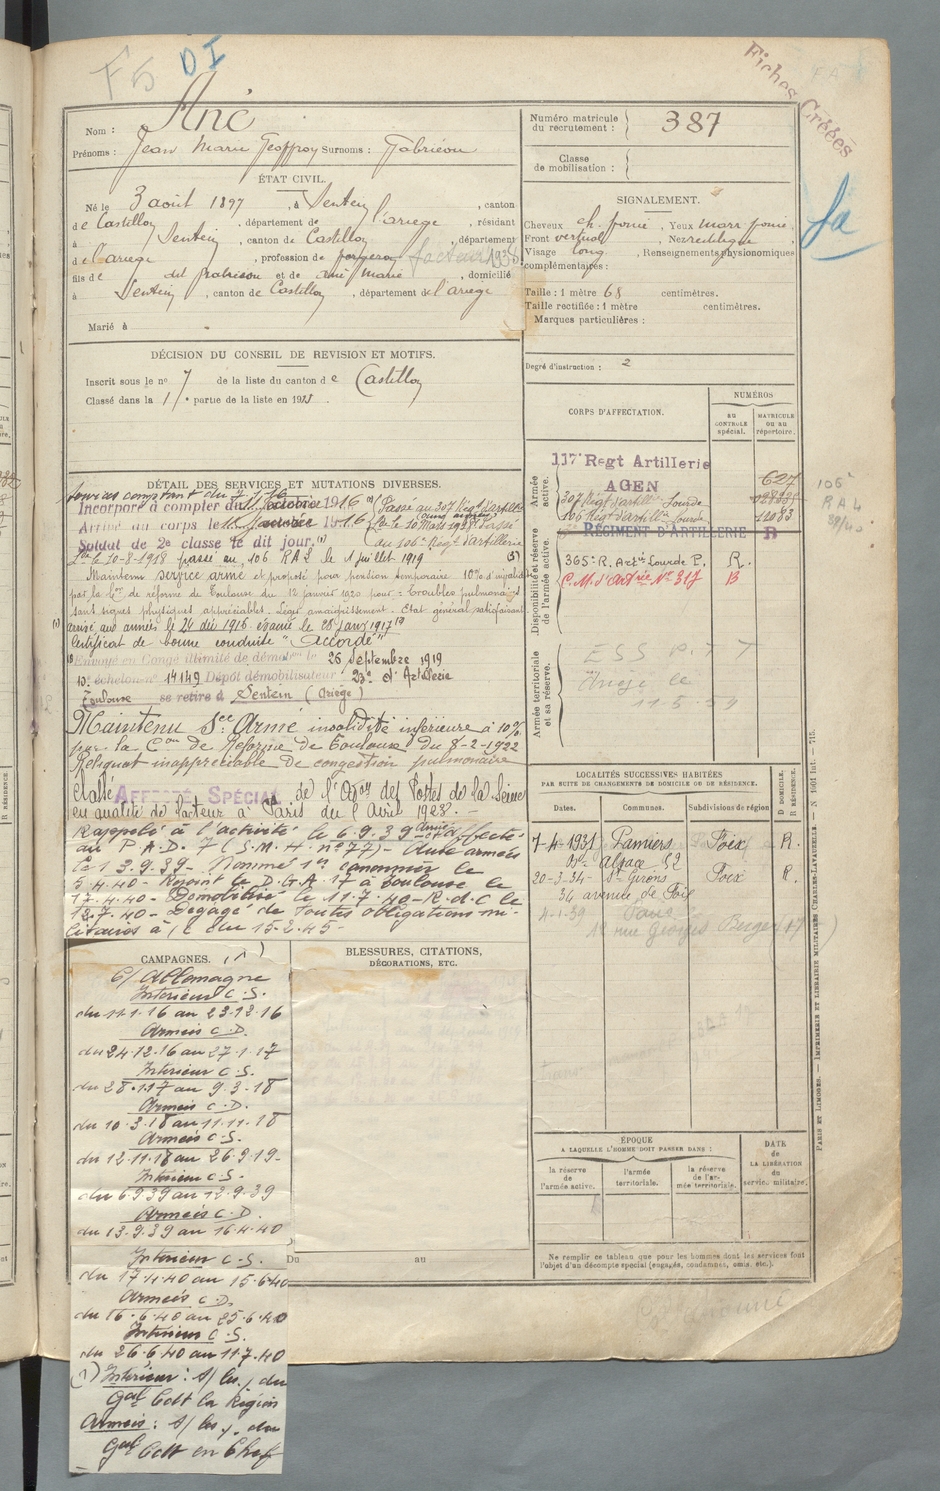 F5 DI
Fiches Créées
Nom : Anc
Prénoms : Jean Marie Geoffroy Surnoms :
Numéro matricule du recrutement : 387
Classe de mobilisation :
ÉTAT CIVIL.
Né le 3 août 1897, à Sentein, canton
de Castillon, département de l'ariège, résidant
à Sentein, canton de Castillon, département
de l'ariège, profession de forgeron facteur 1938
fils de et de marie, domicilié
à Sentein, canton de Castillon, département de l'ariège
Marié à
SIGNALEMENT.
Cheveux ch. foncé, Yeux marr foncé
Front vertical, Nez rectiligne
Visage long, Renseignements physionomiques
complémentaires :
Taille : 1 mètre 68 centimètres.
Taille rectifiée : 1 mètre centimètres.
Marques particulières :
Degré d'instruction : 2
DÉCISION DU CONSEIL DE REVISION ET MOTIFS.
Inscrit sous le n° 7 de la liste du canton de Castillon
Classé dans la 1re partie de la liste en 191
CORPS D'AFFECTATION.
NUMÉROS
AU CONTRÔLE spécial.
MATRICULE OU AU répertoire.
Armée active.
117e Regt Artillerie
AGEN
627
307 Régt d'artillie Lourde
106 Régt d'artillie Lourde 12083
RÉGIMENT D'ARTILLERIE R
Disponibilité et réserve de l'armée active.
365e R. Artie Lourde P. R.
C.M. d'Artie N° 317 B
Armée territoriale et sa réserve.
ESS P.T T
le
11-5-39
106
RAL
DÉTAIL DES SERVICES ET MUTATIONS DIVERSES.
Services comptant du
Incorporé à compter du 1916
Arrivé au corps le 1916
Soldat de 2e classe le dit jour.
Passé au 307 Régt d'artillerie
le 10 Mars 1918 Passé
au 106e Régt d'artillerie
Le 10-8-1918 passé au 106 RAL le 1 juillet 1919
Maintenu service armé et proposé pour pension temporaire 10% d'invalidité
par la Cion de réforme de Toulouse du 12 janvier 1920 pour : troubles pulmonaires
sans signes physiques appréciables. Léger amaigrissement. Etat général satisfaisant
aux armées le 24 déc 1916 évacué le 28 janv 1917
Certificat de bonne conduite "Accordé"
Envoyé en Congé illimité de démob le 26 Septembre 1919
10e échelon n° 14149 Dépôt démobilisateur 23e d'Artillerie
Toulouse se retire à Sentein (Ariège)
Maintenu Sce Armé invalidité inférieure à 10%
par la Con de Réforme de Toulouse du 8-2-1922
Reliquat inappréciable de congestion pulmonaire
Classé AFFECTÉ SPÉCIAL de l'Aon des Postes de la Seine
en qualité de facteur à Paris du 1 Avril 1928.
Rappelé à l'activité le 6.9.39 affecté
au P.A.D. 7 (S.M.H. n° 77) - Aux armées
le 13.9.39 - Nommé 1er canonnier le
5.4.40 - Rejoint le D.G.A. 17 à Toulouse le
17.4.40 - Démobilisé le 11.7.40 - R.d.C le
12.7.40 - Dégagé de toutes obligations mi-
litaires à /c du 15.2.45 -
LOCALITÉS SUCCESSIVES HABITÉES
PAR SUITE DE CHANGEMENTS DE DOMICILE OU DE RÉSIDENCE.
Dates. Communes. Subdivisions de région
D DOMICILE. R RÉSIDENCE.
7-4-1931 Pamiers Foix R.
Alsace 52
20-3-34- St Girons Foix R.
34 avenue de Foix
4-1-39 Paris
12 rue Georges Berger (17)
CAMPAGNES. (1)
C/ Allemagne
Intérieur C.S.
du 11.1.16 au 23.12.16
Armées C.D.
du 24.12.16 au 27.1.17
Intérieur C.S.
du 28.1.17 au 9.3.18
Armées C.D.
du 10.3.18 au 11.11.18
Armées C.S.
du 12.11.18 au 26.9.19
Intérieur C.S.
du 6.9.39 au 12.9.39
Armées C.D.
du 13.9.39 au 16.4.40
Intérieur C.S.
du 17.4.40 au 15.6.40
Armées C.D.
du 16.6.40 au 25.6.40
Intérieur C.S.
du 26.6.40 au 11.7.40
(1) Intérieur : s/ les , du
Gal Cdt la Région
Armées : s/ les , du
Gal Cdt en Chef
BLESSURES, CITATIONS,
DÉCORATIONS, ETC.
Du au
ÉPOQUE
A LAQUELLE L'HOMME DOIT PASSER DANS :
la réserve de l'armée active.
l'armée territoriale.
la réserve de l'armée territoriale.
DATE de LA LIBÉRATION du service militaire.
Ne remplir ce tableau que pour les hommes dont les services font
l'objet d'un décompte spécial (engagés, condamnés, omis, etc.).
PARIS ET LIMOGES. — IMPRIMERIE ET LIBRAIRIE MILITAIRES CHARLES-LAVAUZELLE.